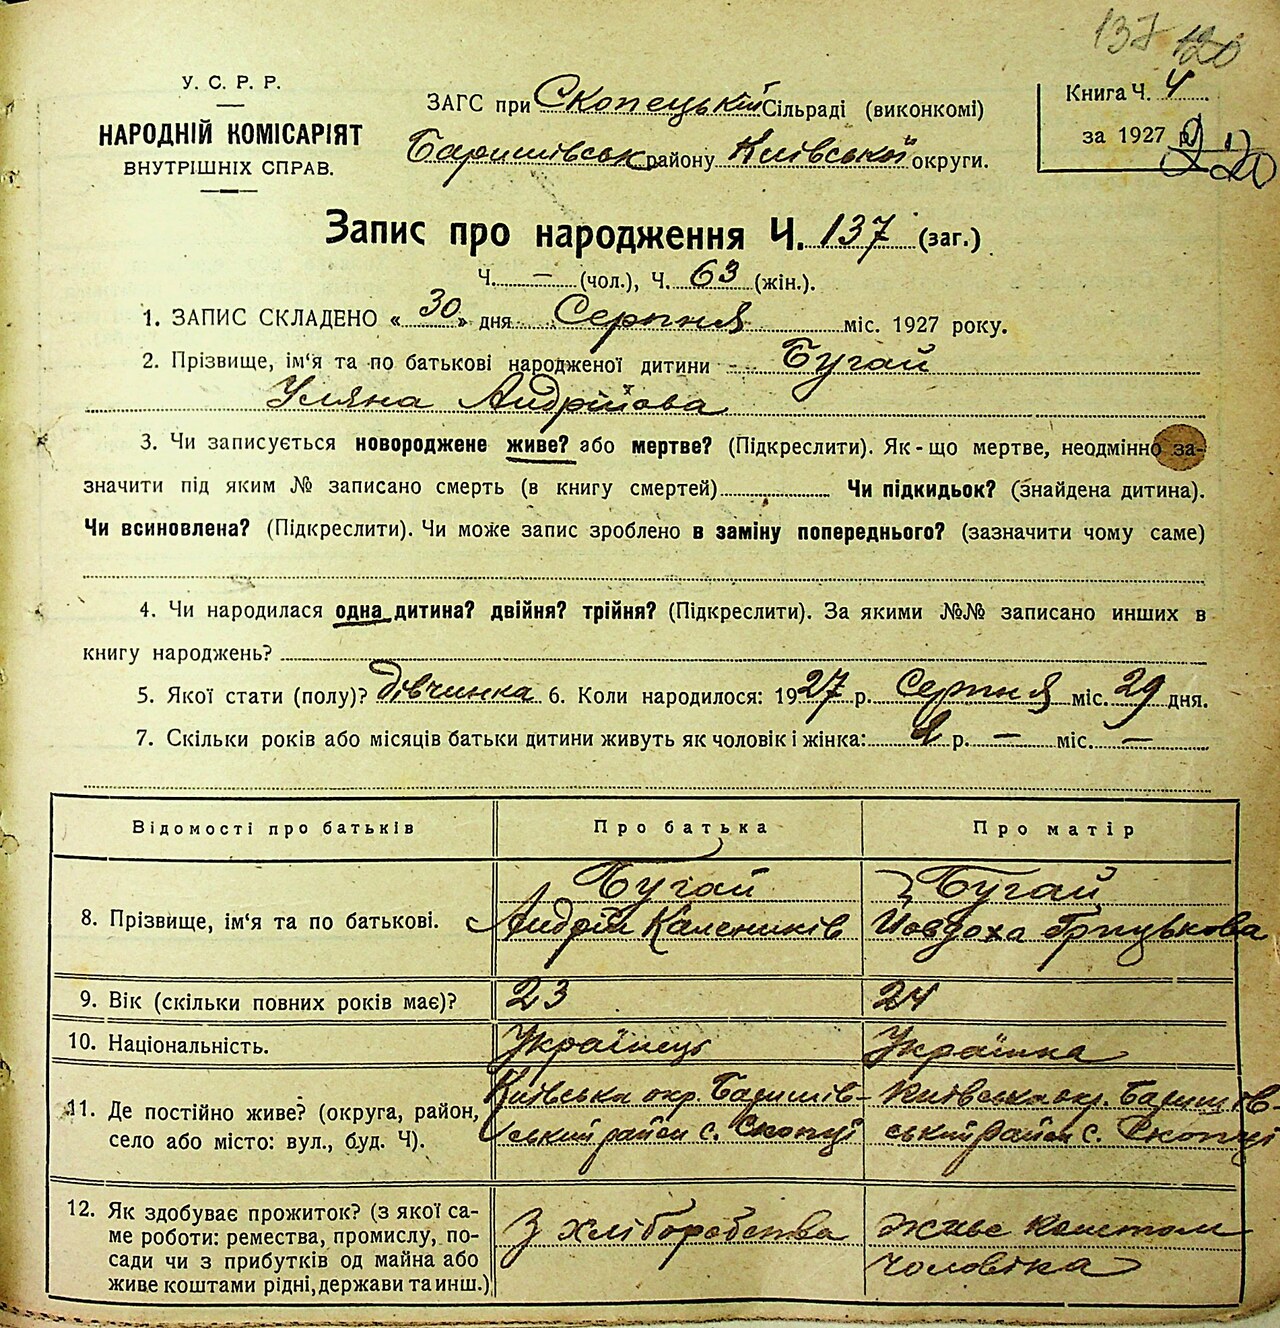 137 120
У. С. Р. Р.
НАРОДНІЙ КОМІСАРІЯТ
ВНУТРІШНІХ СПРАВ.
ЗАГС при Скопецькій Сільраді (виконкомі)
Баришівськ району Київської округи.
Книга Ч. 4
за 1927 р.
Запис про народження Ч. 137 (заг.)
Ч. — (чол.), Ч. 63 (жін.).
1. ЗАПИС СКЛАДЕНО « 30 » дня Серпня міс. 1927 року.
2. Прізвище, ім'я та по батькові народженої дитини Бугай
Уляна Андрійова
3. Чи записується новороджене живе? або мертве? (Підкреслити). Як-що мертве, неодмінно за-
значити під яким № записано смерть (в книгу смертей) Чи підкидьок? (знайдена дитина).
Чи всиновлена? (Підкреслити). Чи може запис зроблено в заміну попереднього? (зазначити чому саме)
4. Чи народилася одна дитина? двійня? трійня? (Підкреслити). За якими №№ записано инших в
книгу народжень?
5. Якої стати (полу)? дівчинка 6. Коли народилося: 1927 р. Серпня міс. 29 дня.
7. Скільки років або місяців батьки дитини живуть як чоловік і жінка: р. — міс. —
Відомості про батьків Про батька Про матір
8. Прізвище, ім'я та по батькові. Бугай Андрій Калеників Бугай Йовдоха Грицькова
9. Вік (скільки повних років має)? 23 24
10. Національність. Українець Українка
11. Де постійно живе? (округа, район, село або місто: вул., буд. Ч). Київська окр. Баришів-ський район с. Скопці Київська окр. Баришів-ський район с. Скопці
12. Як здобуває прожиток? (з якої са-ме роботи: ремества, промислу, по-сади чи з прибутків од майна або живе коштами рідні, держави та инш.) З хліборобства Живе коштом чоловіка